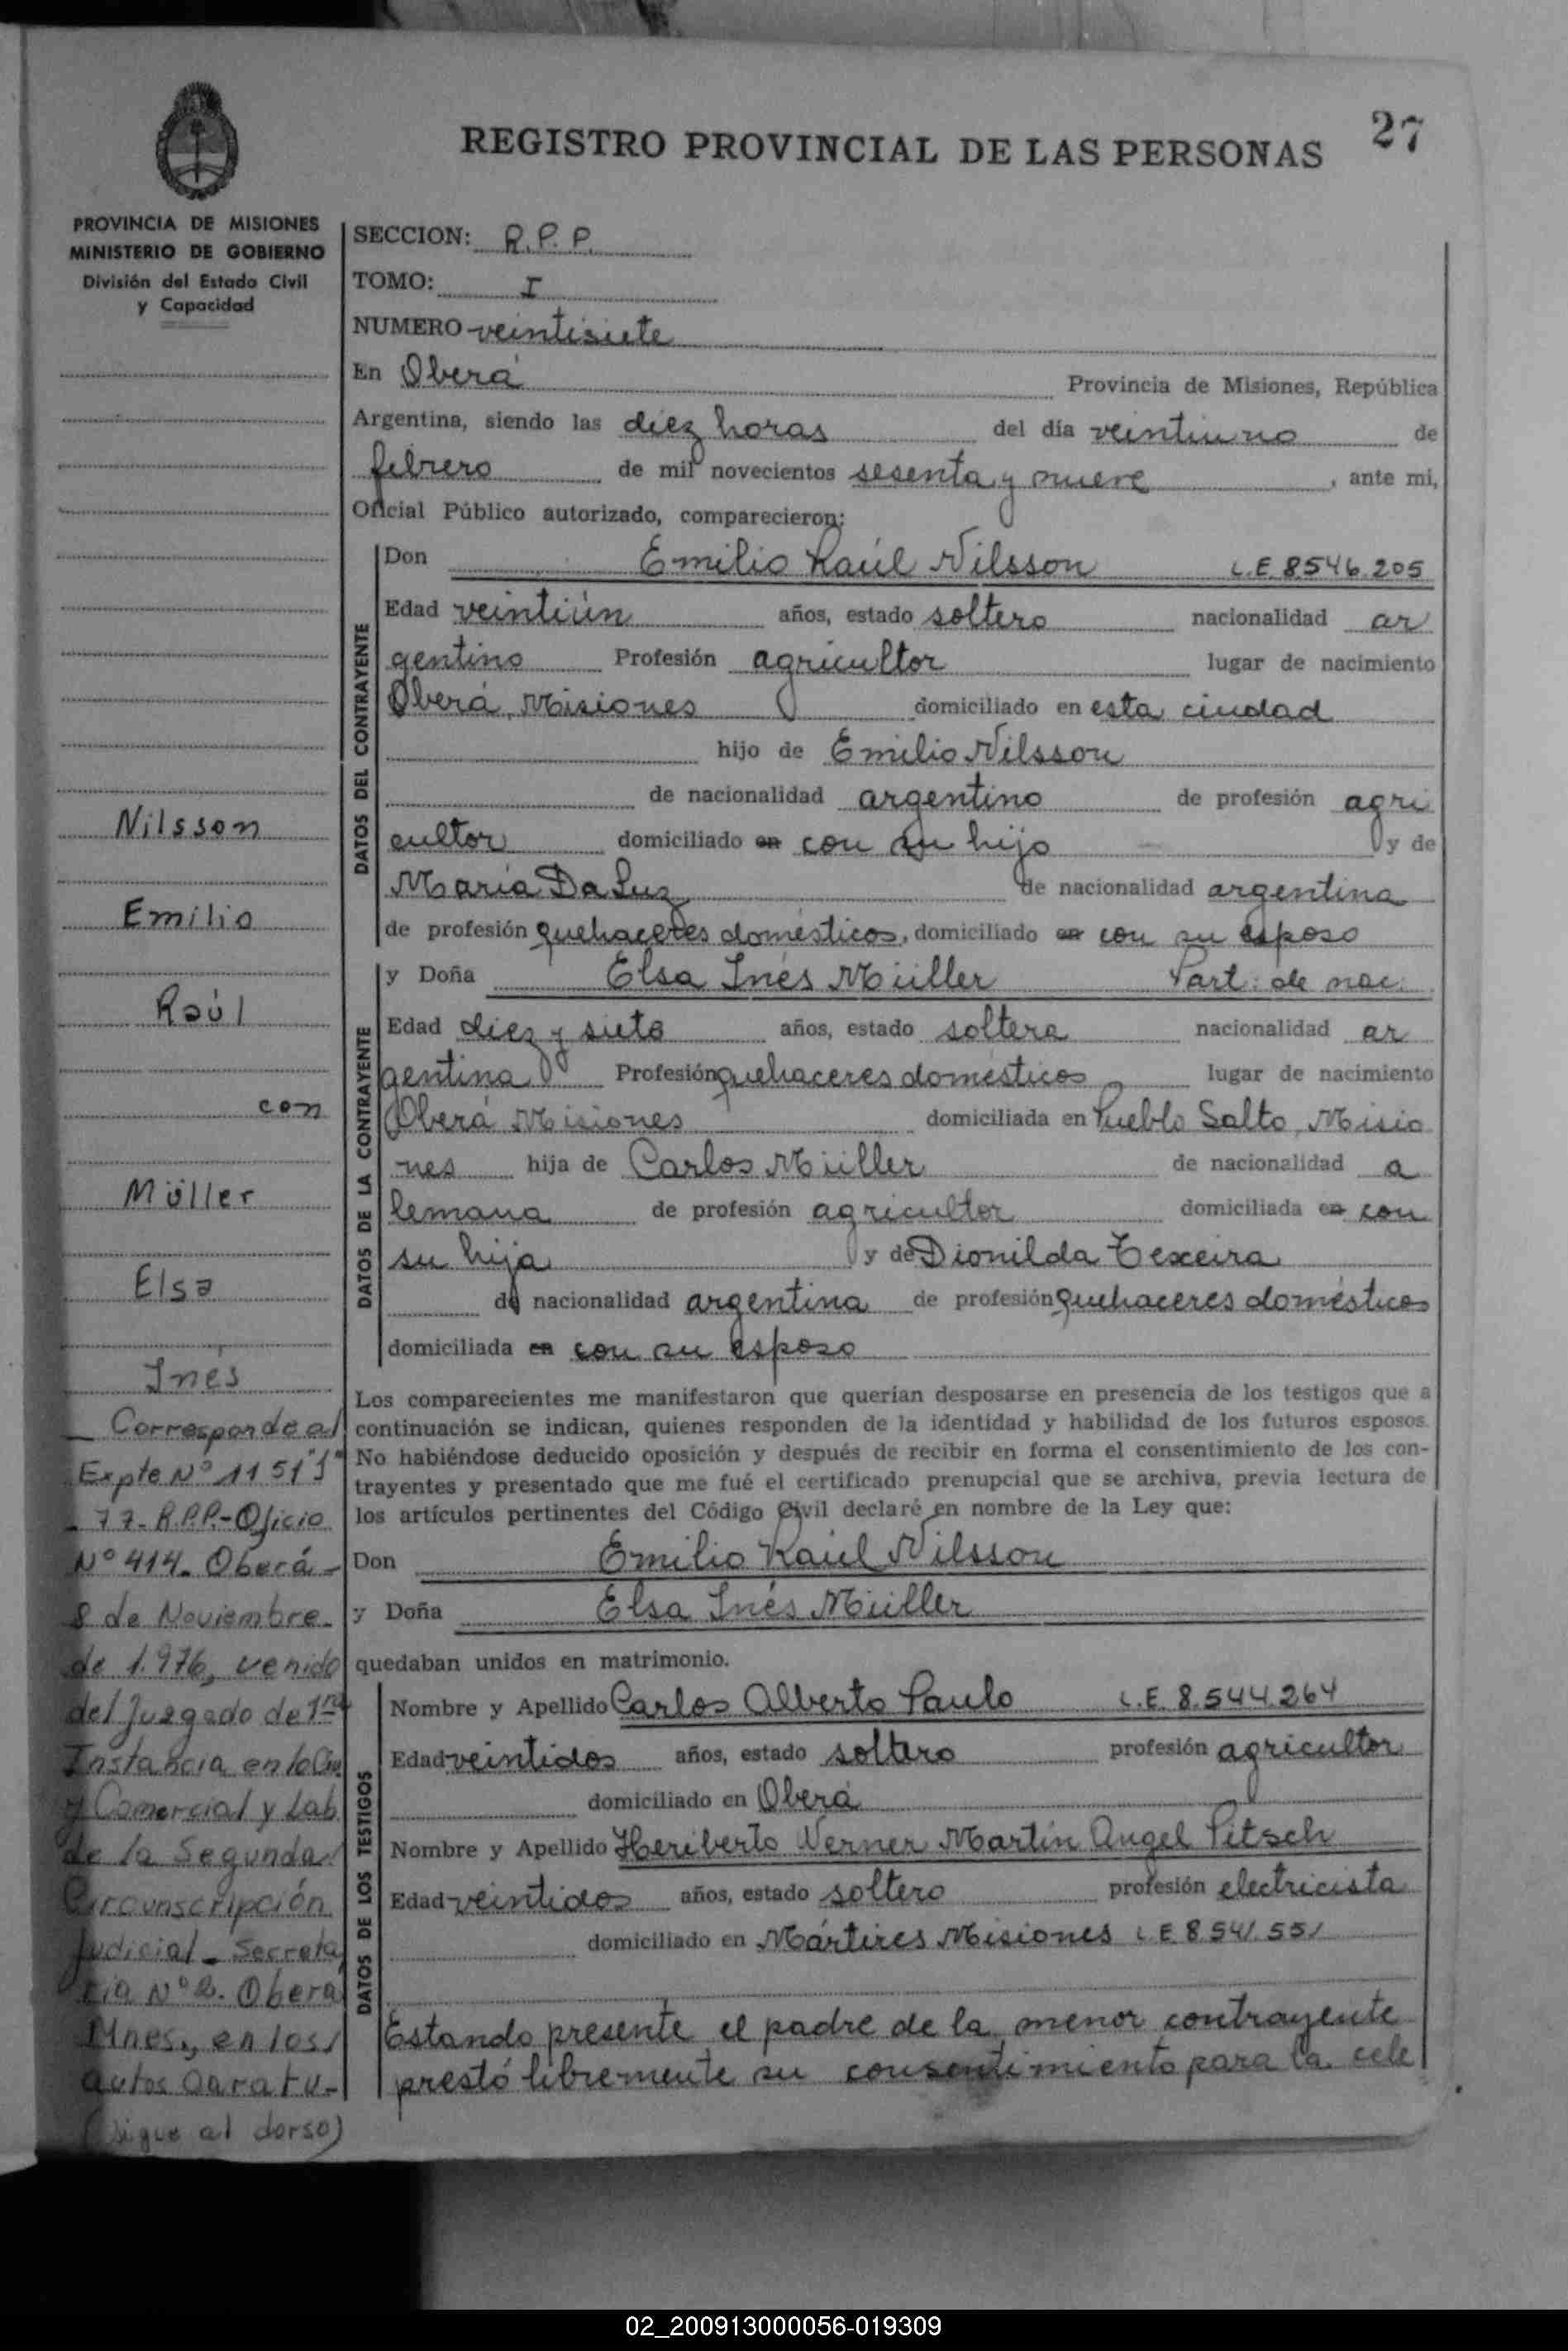 REGISTRO PROVINCIAL DE LAS PERSONAS
27
PROVINCIA DE MISIONES
MINISTERIO DE GOBIERNO
División del Estado Civil
y Capacidad
SECCION: R.P.P.
TOMO: I
NUMERO veintisiete
En Oberá Provincia de Misiones, República
Argentina, siendo las diez horas del día veintiuno de
febrero de mil novecientos sesenta y nueve, ante mi,
Oficial Público autorizado, comparecieron:
DATOS DEL CONTRAYENTE
Don Emilio Raúl Nilsson L.E. 8546.205
Edad veintiún años, estado soltero nacionalidad ar
gentino Profesión agricultor lugar de nacimiento
Oberá, Misiones domiciliado en esta ciudad
hijo de Emilio Nilsson
de nacionalidad argentino de profesión agri
cultor domiciliado en con su hijo y de
María Da Luz de nacionalidad argentina
de profesión quehaceres domésticos, domiciliado en con su esposo
DATOS DE LA CONTRAYENTE
y Doña Elsa Inés Müller Part. de nac.
Edad diez y siete años, estado soltera nacionalidad ar
gentina Profesión quehaceres domésticos lugar de nacimiento
Oberá Misiones domiciliada en Pueblo Salto, Misio
nes hija de Carlos Müller de nacionalidad a
lemana de profesión agricultor domiciliada en con
su hija y de Dionilda Texeira
de nacionalidad argentina de profesión quehaceres domésticos
domiciliada en con su esposo
Los comparecientes me manifestaron que querían desposarse en presencia de los testigos que a
continuación se indican, quienes responden de la identidad y habilidad de los futuros esposos.
No habiéndose deducido oposición y después de recibir en forma el consentimiento de los con-
trayentes y presentado que me fué el certificado prenupcial que se archiva, previa lectura de
los artículos pertinentes del Código Civil declaré en nombre de la Ley que:
Don Emilio Raúl Nilsson
y Doña Elsa Inés Müller
quedaban unidos en matrimonio.
DATOS DE LOS TESTIGOS
Nombre y Apellido Carlos Alberto Paulo L.E. 8.544.264
Edad veintidos años, estado soltero profesión agricultor
domiciliado en Oberá
Nombre y Apellido Heriberto Werner Martín Angel Pitsch
Edad veintidos años, estado soltero profesión electricista
domiciliado en Mártires Misiones L.E 8.541.551
Estando presente el padre de la menor contrayente
prestó libremente su consentimiento para la cele
Nilsson
Emilio
Raúl
con
Müller
Elsa
Inés
_ Corresponde al
Expte Nº 1151 "J"
- 77- R.P.P.- Oficio
Nº 414. Oberá -
8 de Noviembre
de 1.976, venido
del Juzgado de 1ra
Instancia en lo Civ.
y Comercial y Lab.
de la Segunda
Circunscripción
Judicial - Secreta
ria Nº 2. Oberá
Mnes., en los
autos caratu-
(sigue al dorso)
02_200913000056-019309